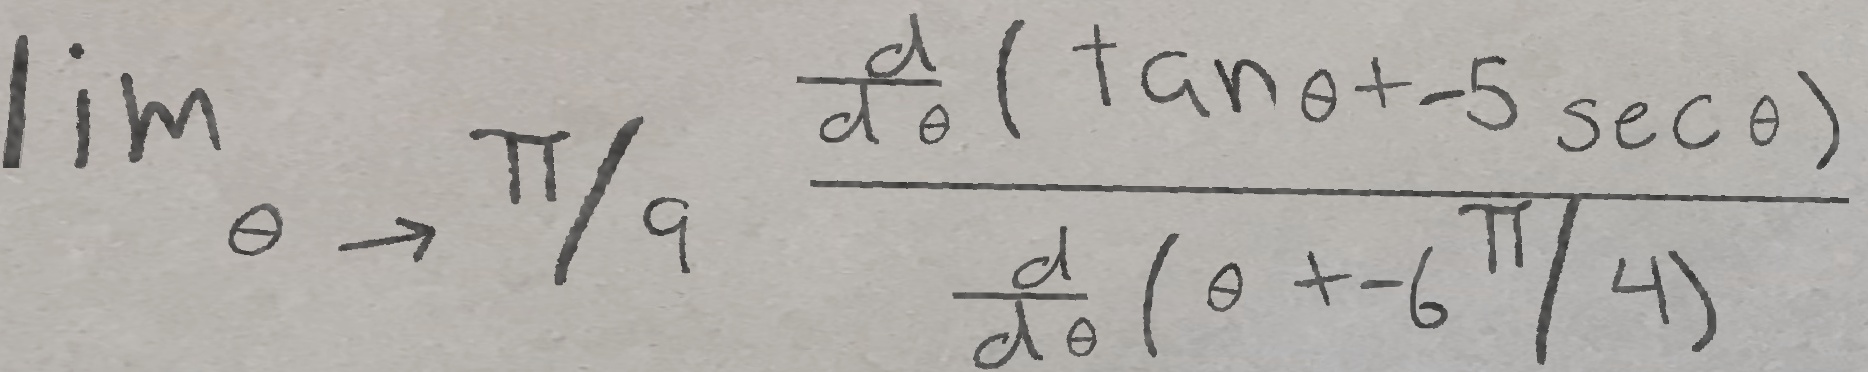 lim θ → π/9 d/dθ (tan θ + -5 sec θ) / d/dθ (θ + -6 π/4)